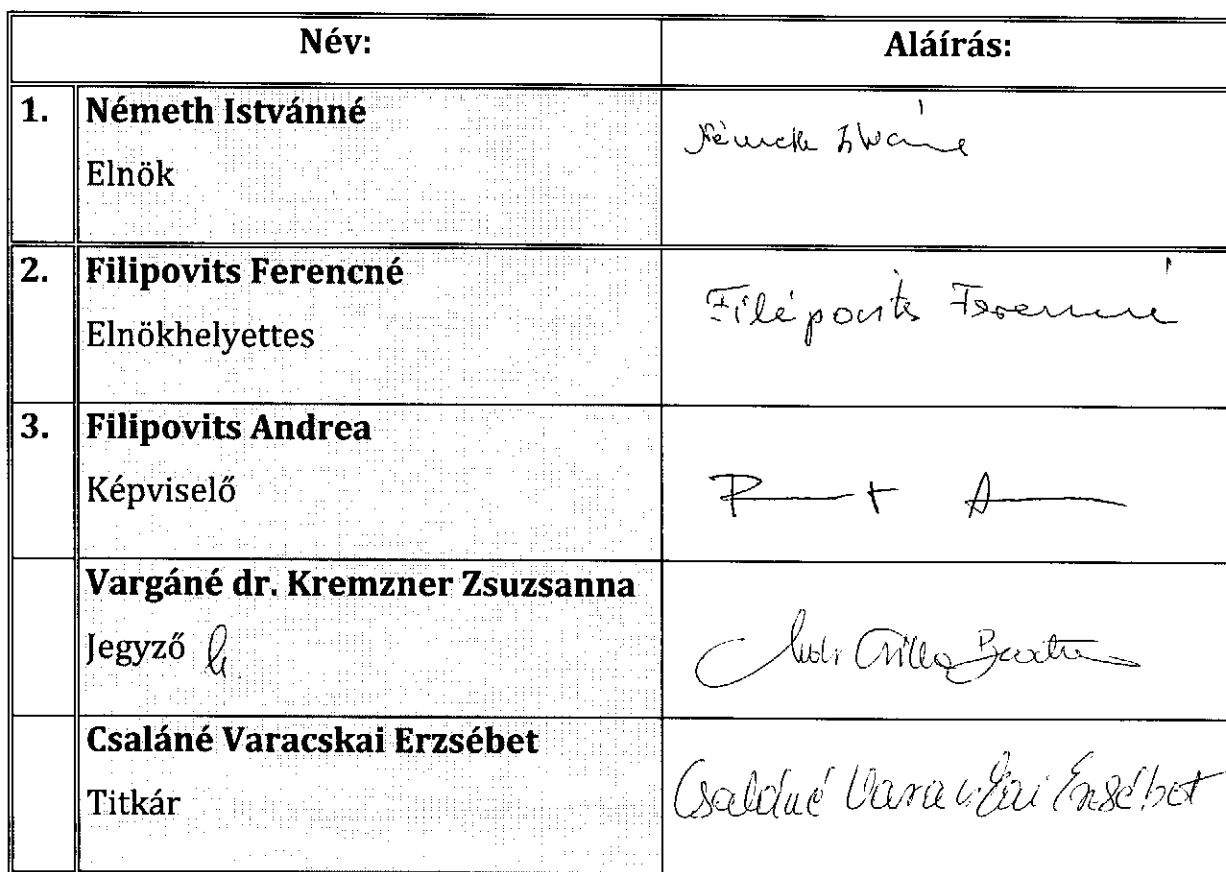 Név: Aláírás:
1. Németh Istvánné
Elnök
Németh Istvánné
2. Filipovits Ferencné
Elnökhelyettes
Filipovits Ferencné
3. Filipovits Andrea
Képviselő
Vargáné dr. Kremzner Zsuzsanna
Jegyző
Csilla
Csaláné Varacskai Erzsébet
Titkár
Csaláné Varacskai Erzsébet